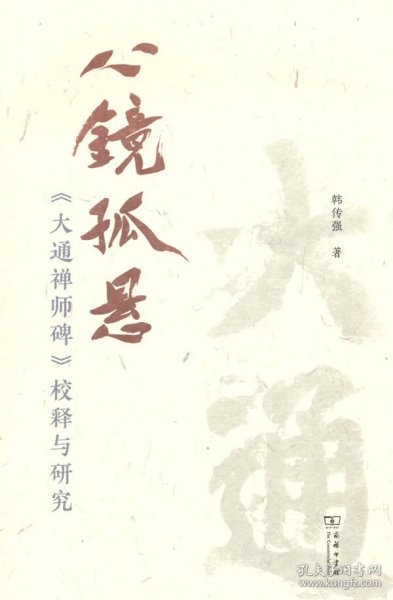 心镜孤悬
《大通禅师碑》校释与研究
韩传强 著
大通
商务印书馆
The Commercial Press
孔夫子旧书网
www.kongfz.com